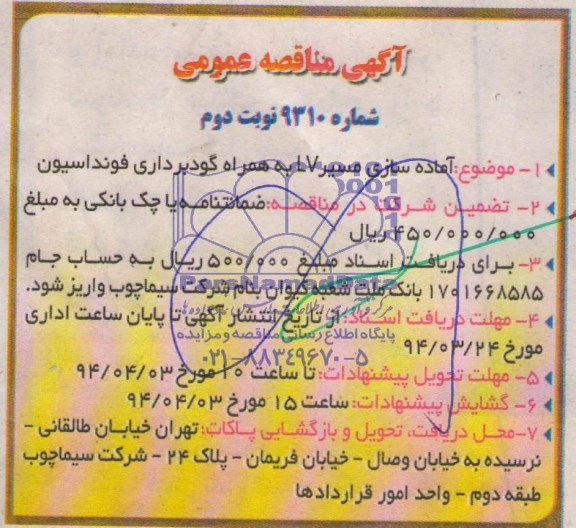 آگهی مناقصه عمومی
شماره ۹۳۱۰ نوبت دوم
۱- موضوع: آماده سازی مسیر LV به همراه گودبرداری فونداسیون
۲- تضمین شرکت در مناقصه: ضمانتنامه یا چک بانکی به مبلغ
۴۵۰/۰۰۰/۰۰۰ ریال
۳- برای دریافت اسناد مبلغ ۵۰۰/۰۰۰ ریال به حساب جام
۱۷۰۱۶۶۸۵۸۵ بانک ملت شعبه کیوان بنام شرکت سیماچوب واریز شود.
۴- مهلت دریافت اسناد: از تاریخ انتشار آگهی تا پایان ساعت اداری
مورخ ۹۴/۰۳/۲۴
پایگاه اطلاع رسانی مناقصه و مزایده
۰۲۱-۸۸۳۴۹۶۷۰-۵
۵- مهلت تحویل پیشنهادات: تا ساعت ۱۰ مورخ ۹۴/۰۴/۰۳
۶- گشایش پیشنهادات: ساعت ۱۵ مورخ ۹۴/۰۴/۰۳
۷- محل دریافت، تحویل و بازگشایی پاکات: تهران خیابان طالقانی -
نرسیده به خیابان وصال - خیابان فریمان - پلاک ۲۴ - شرکت سیماچوب
طبقه دوم - واحد امور قراردادها